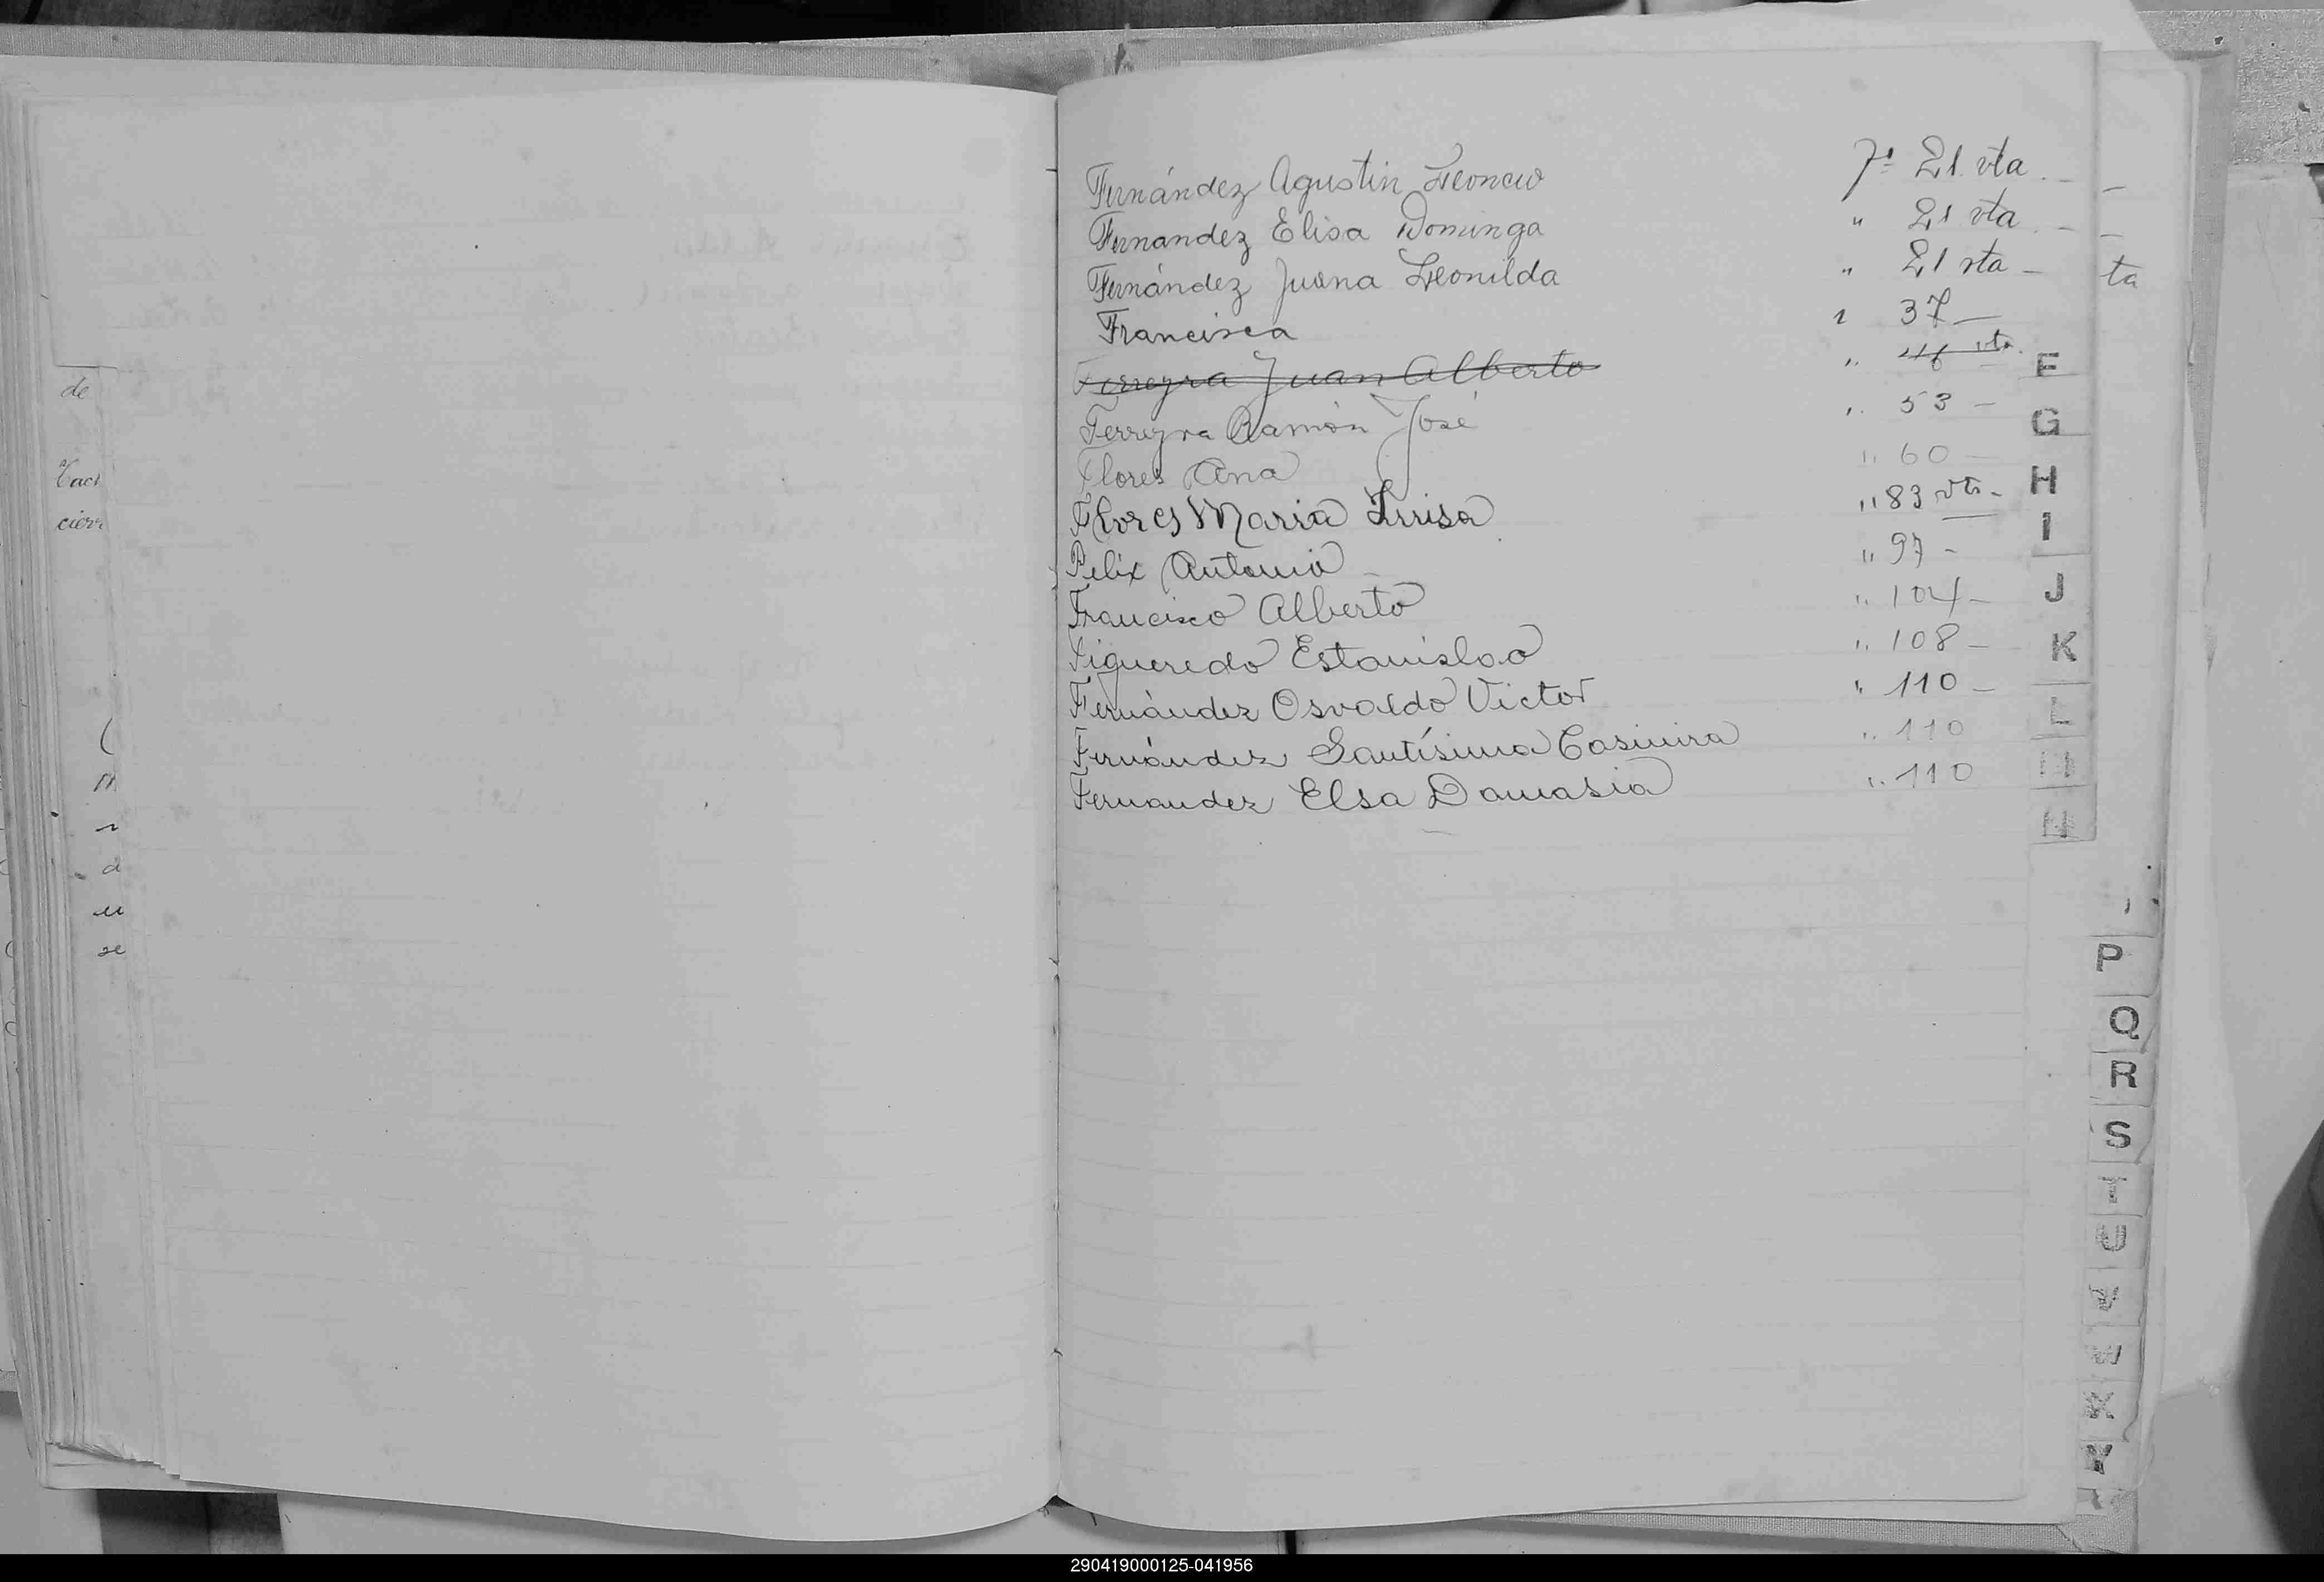 Fernández Agustin Leoncio 7º 21 vta. -
Fernandez Elisa Dominga " 21 vta. -
Fernández Juana Leonilda " 21 vta -
ta
Francisca " 37 -
Ferreyra Juan Alberto " 46 vta.
Ferreyra Ramón José " 53 -
Flores Ana " 60 -
Flores Maria Luisa " 83 vta -
Felix Antonio " 97 -
Francisco Alberto " 104 -
Figueredo Estanislao " 108 -
Fernández Osvaldo Victor " 110 -
Fernández Santísima Casimira " 110
Fernandez Elsa Damasia " 110
de
cier
a
se
F
G
H
I
J
K
L
M
N
P
Q
R
S
T
U
V
W
X
Y
290419000125-041956